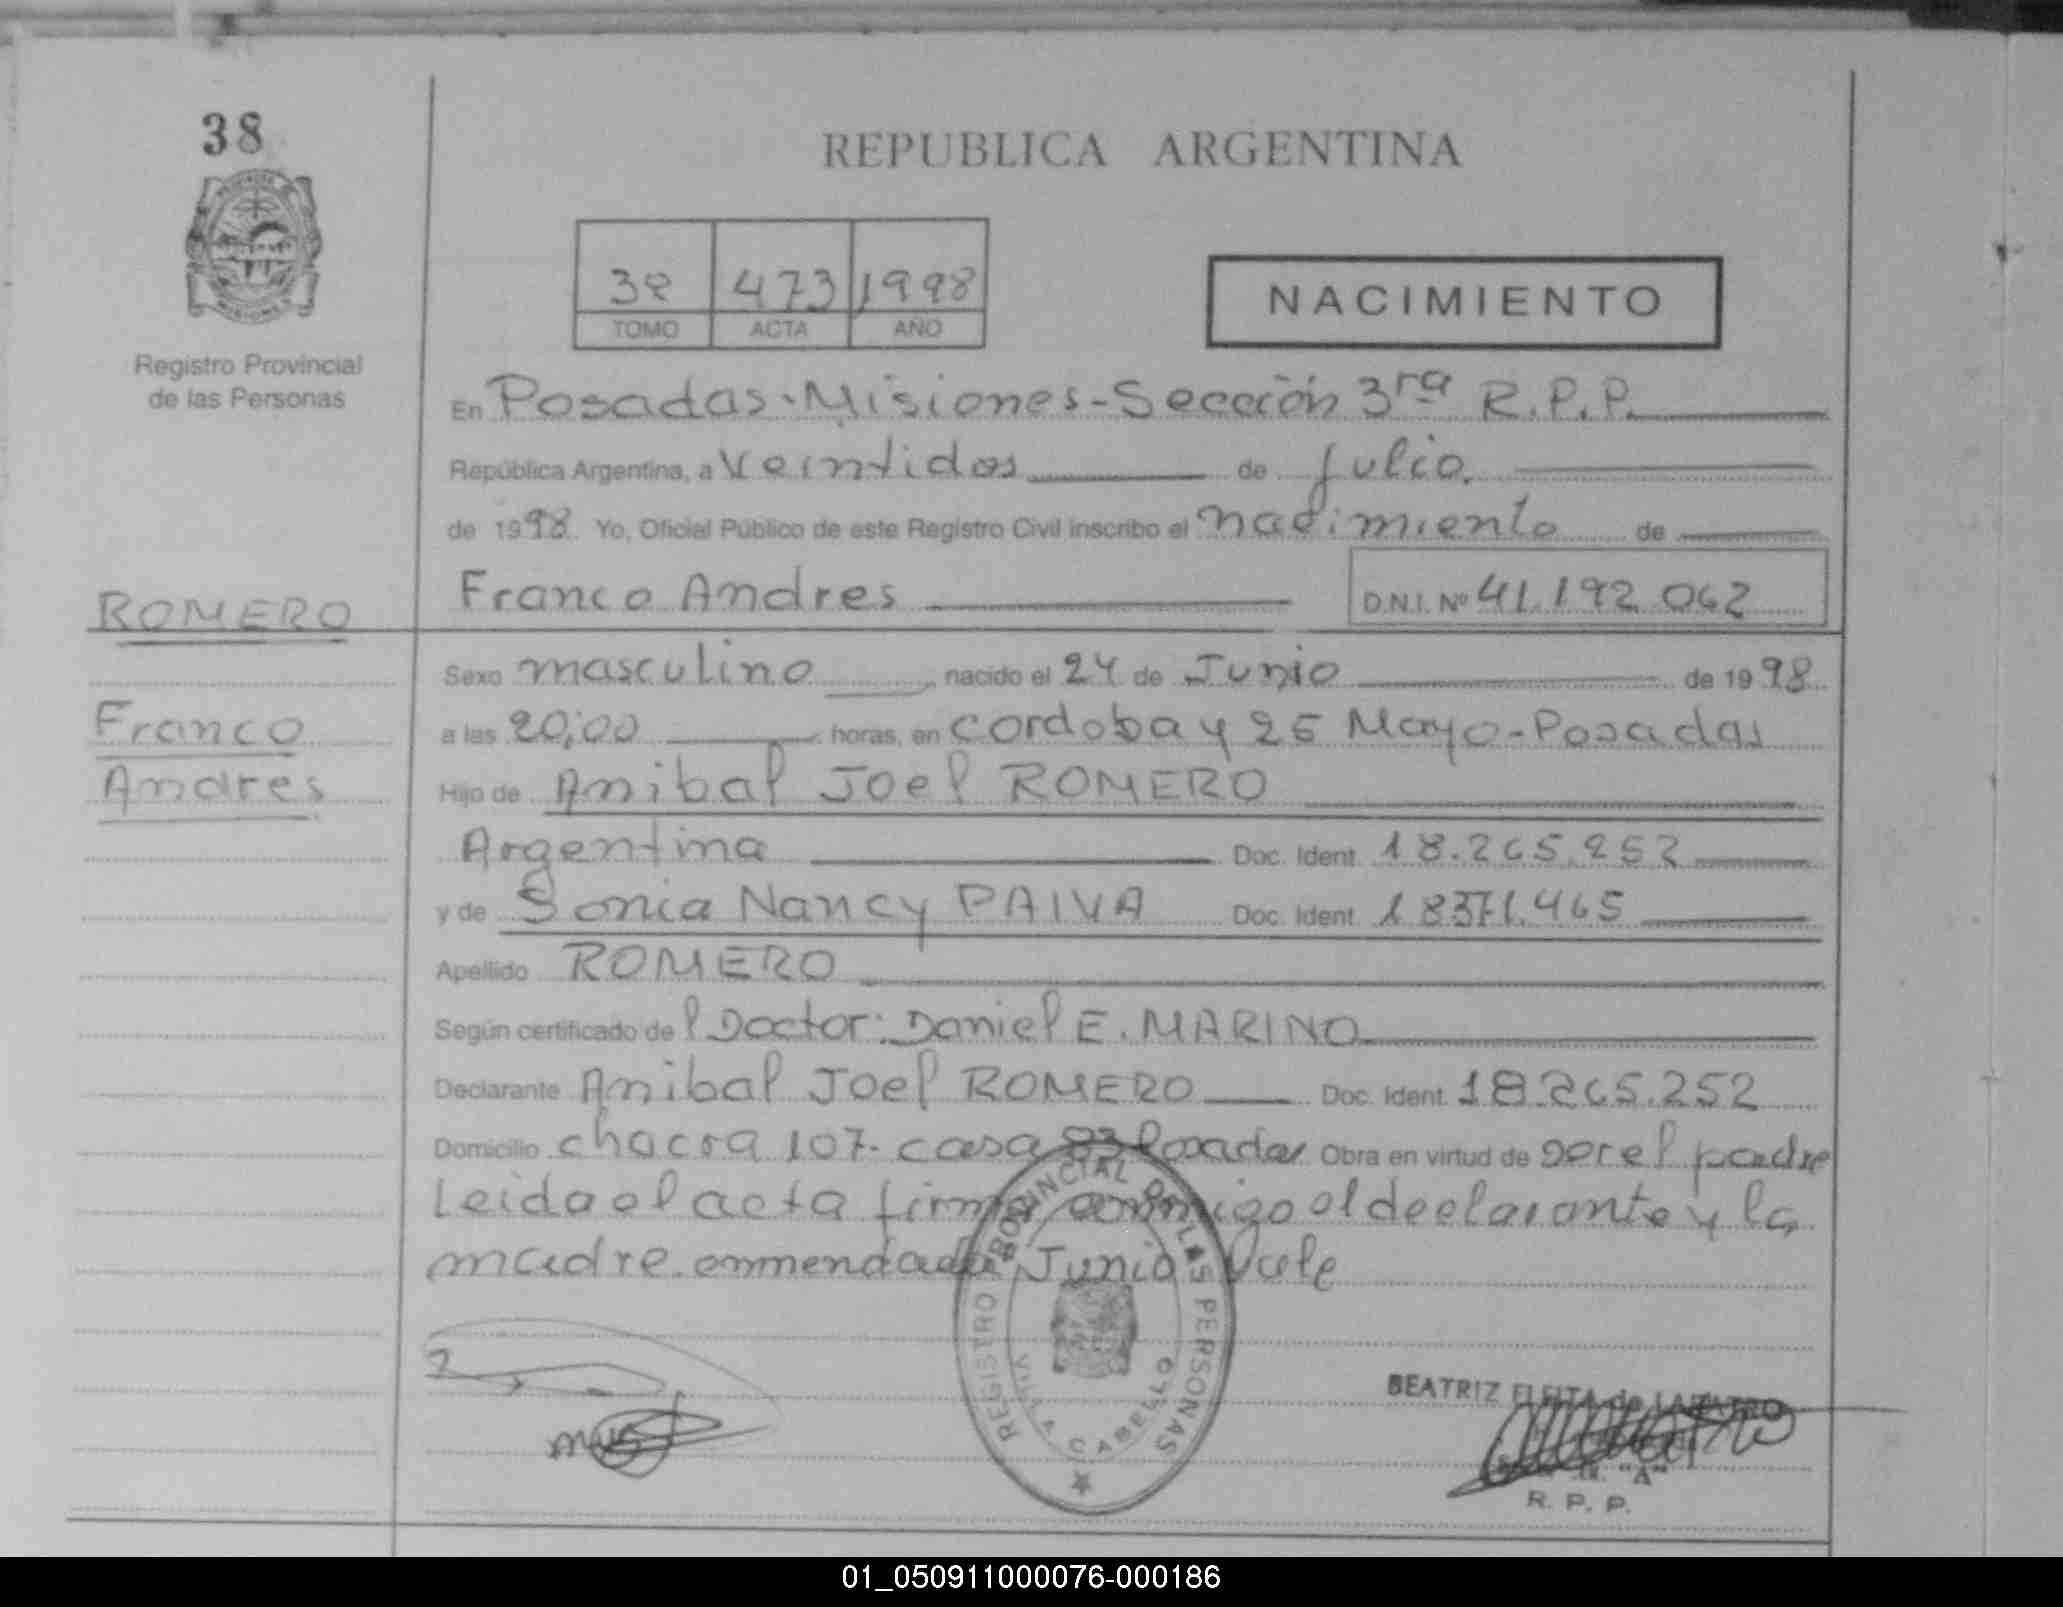 38
REPUBLICA ARGENTINA
473 1998
TOMO ACTA AÑO
NACIMIENTO
Registro Provincial
de las Personas
En Posadas-Misiones-Sección 3ra R.P.P.
República Argentina, a Veintidos de Julio.
de 1998. Yo, Oficial Público de este Registro Civil inscribo el nacimiento de
ROMERO
Franco Andres D.N.I. Nº 41.192.062
Sexo masculino, nacido el 24 de Junio de 1998
Franco
a las 20;00 horas, en cordoba y 25 Mayo-Posadas
Andres
Hijo de Anibal Joel ROMERO
Argentina Doc. Ident. 18.265.252
y de Sonia Nancy PAIVA Doc. Ident. 18371.465
Apellido ROMERO
Según certificado del Doctor: Daniel E. MARINO
Declarante Anibal Joel ROMERO Doc. Ident. 18.265.252
Domicilio chacra 107- casa Posadas Obra en virtud de ser el padre
Leida el acta firma conmigo el declarante y la
madre. enmendado Junio Vale
REGISTRO PROVINCIAL DE LAS PERSONAS
VILLA CABELLO
BEATRIZ FLEITA de
"A"
R. P. P.
01_050911000076-000186